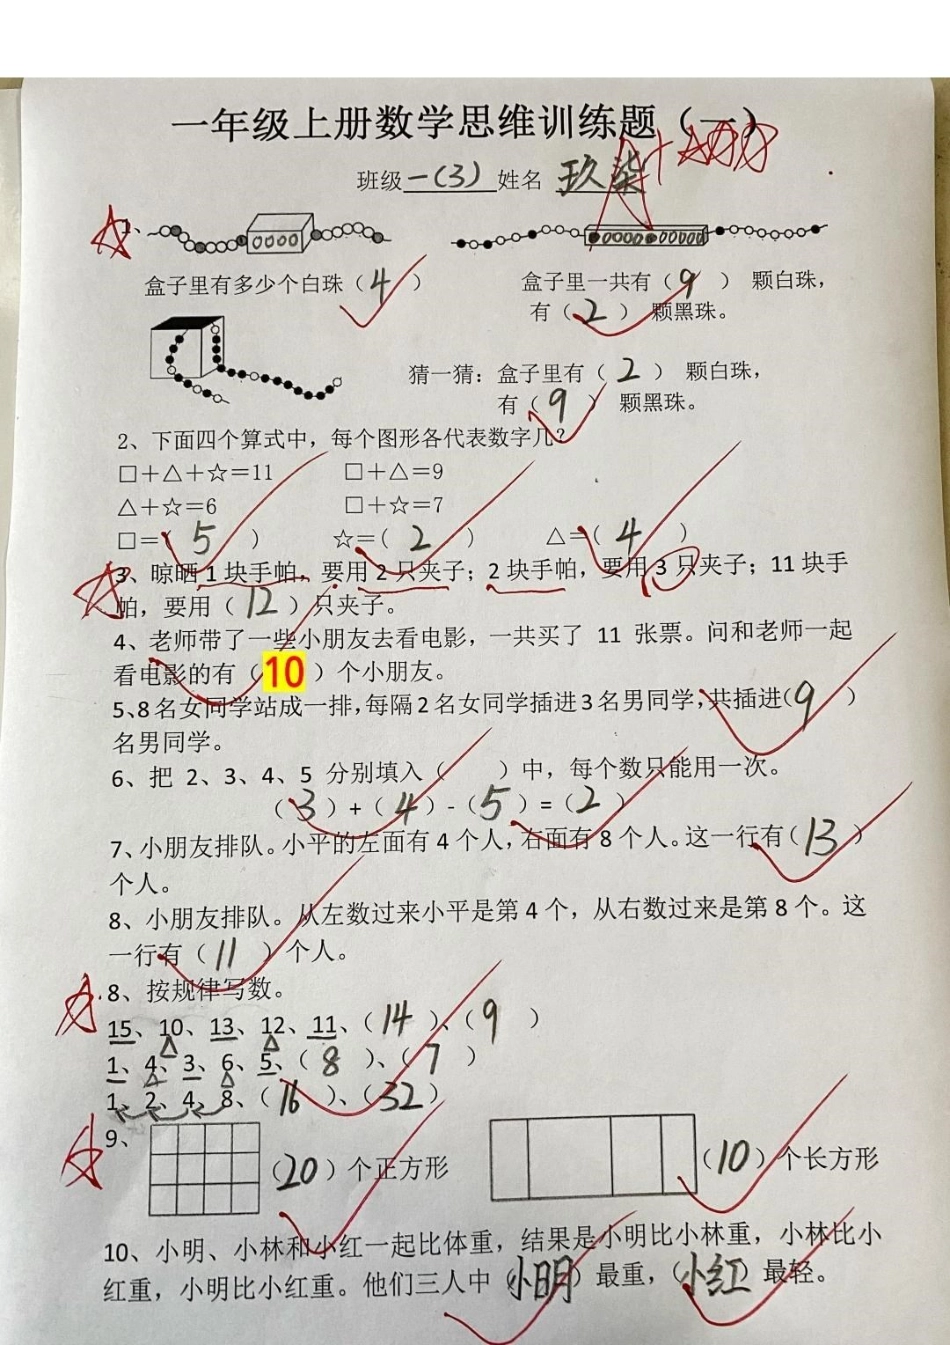 一年级上册数学思维训练题（一）
A+ 100
班级 一(3) 姓名 玖柒
1、
盒子里有多少个白珠（ 4 ） 盒子里一共有（ 9 ） 颗白珠，
有（ 2 ） 颗黑珠。
猜一猜：盒子里有（ 2 ） 颗白珠，
有（ 9 ） 颗黑珠。
2、下面四个算式中，每个图形各代表数字几？
□＋△＋☆＝11 □＋△＝9
△＋☆＝6 □＋☆＝7
□＝（ 5 ） ☆＝（ 2 ） △＝（ 4 ）
3、晾晒 1 块手帕，要用 2 只夹子；2 块手帕，要用 3 只夹子；11 块手
帕，要用（ 12 ）只夹子。
4、老师带了一些小朋友去看电影，一共买了 11 张票。问和老师一起
看电影的有（ 10 ）个小朋友。
5、8 名女同学站成一排，每隔 2 名女同学插进 3 名男同学，共插进（ 9 ）
名男同学。
6、把 2、3、4、5 分别填入（ ）中，每个数只能用一次。
（ 3 ）+（ 4 ）-（ 5 ）=（ 2 ）
7、小朋友排队。小平的左面有 4 个人，右面有 8 个人。这一行有（ 13 ）
个人。
8、小朋友排队。从左数过来小平是第 4 个，从右数过来是第 8 个。这
一行有（ 11 ）个人。
8、按规律写数。
15、10、13、12、11、（ 14 ）、（ 9 ）
1、4、3、6、5、（ 8 ）、（ 7 ）
1、2、4、8、（ 16 ）、（ 32 ）
9、
（ 20 ）个正方形 （ 10 ）个长方形
10、小明、小林和小红一起比体重，结果是小明比小林重，小林比小
红重，小明比小红重。他们三人中（ 小明 ）最重，（ 小红 ）最轻。